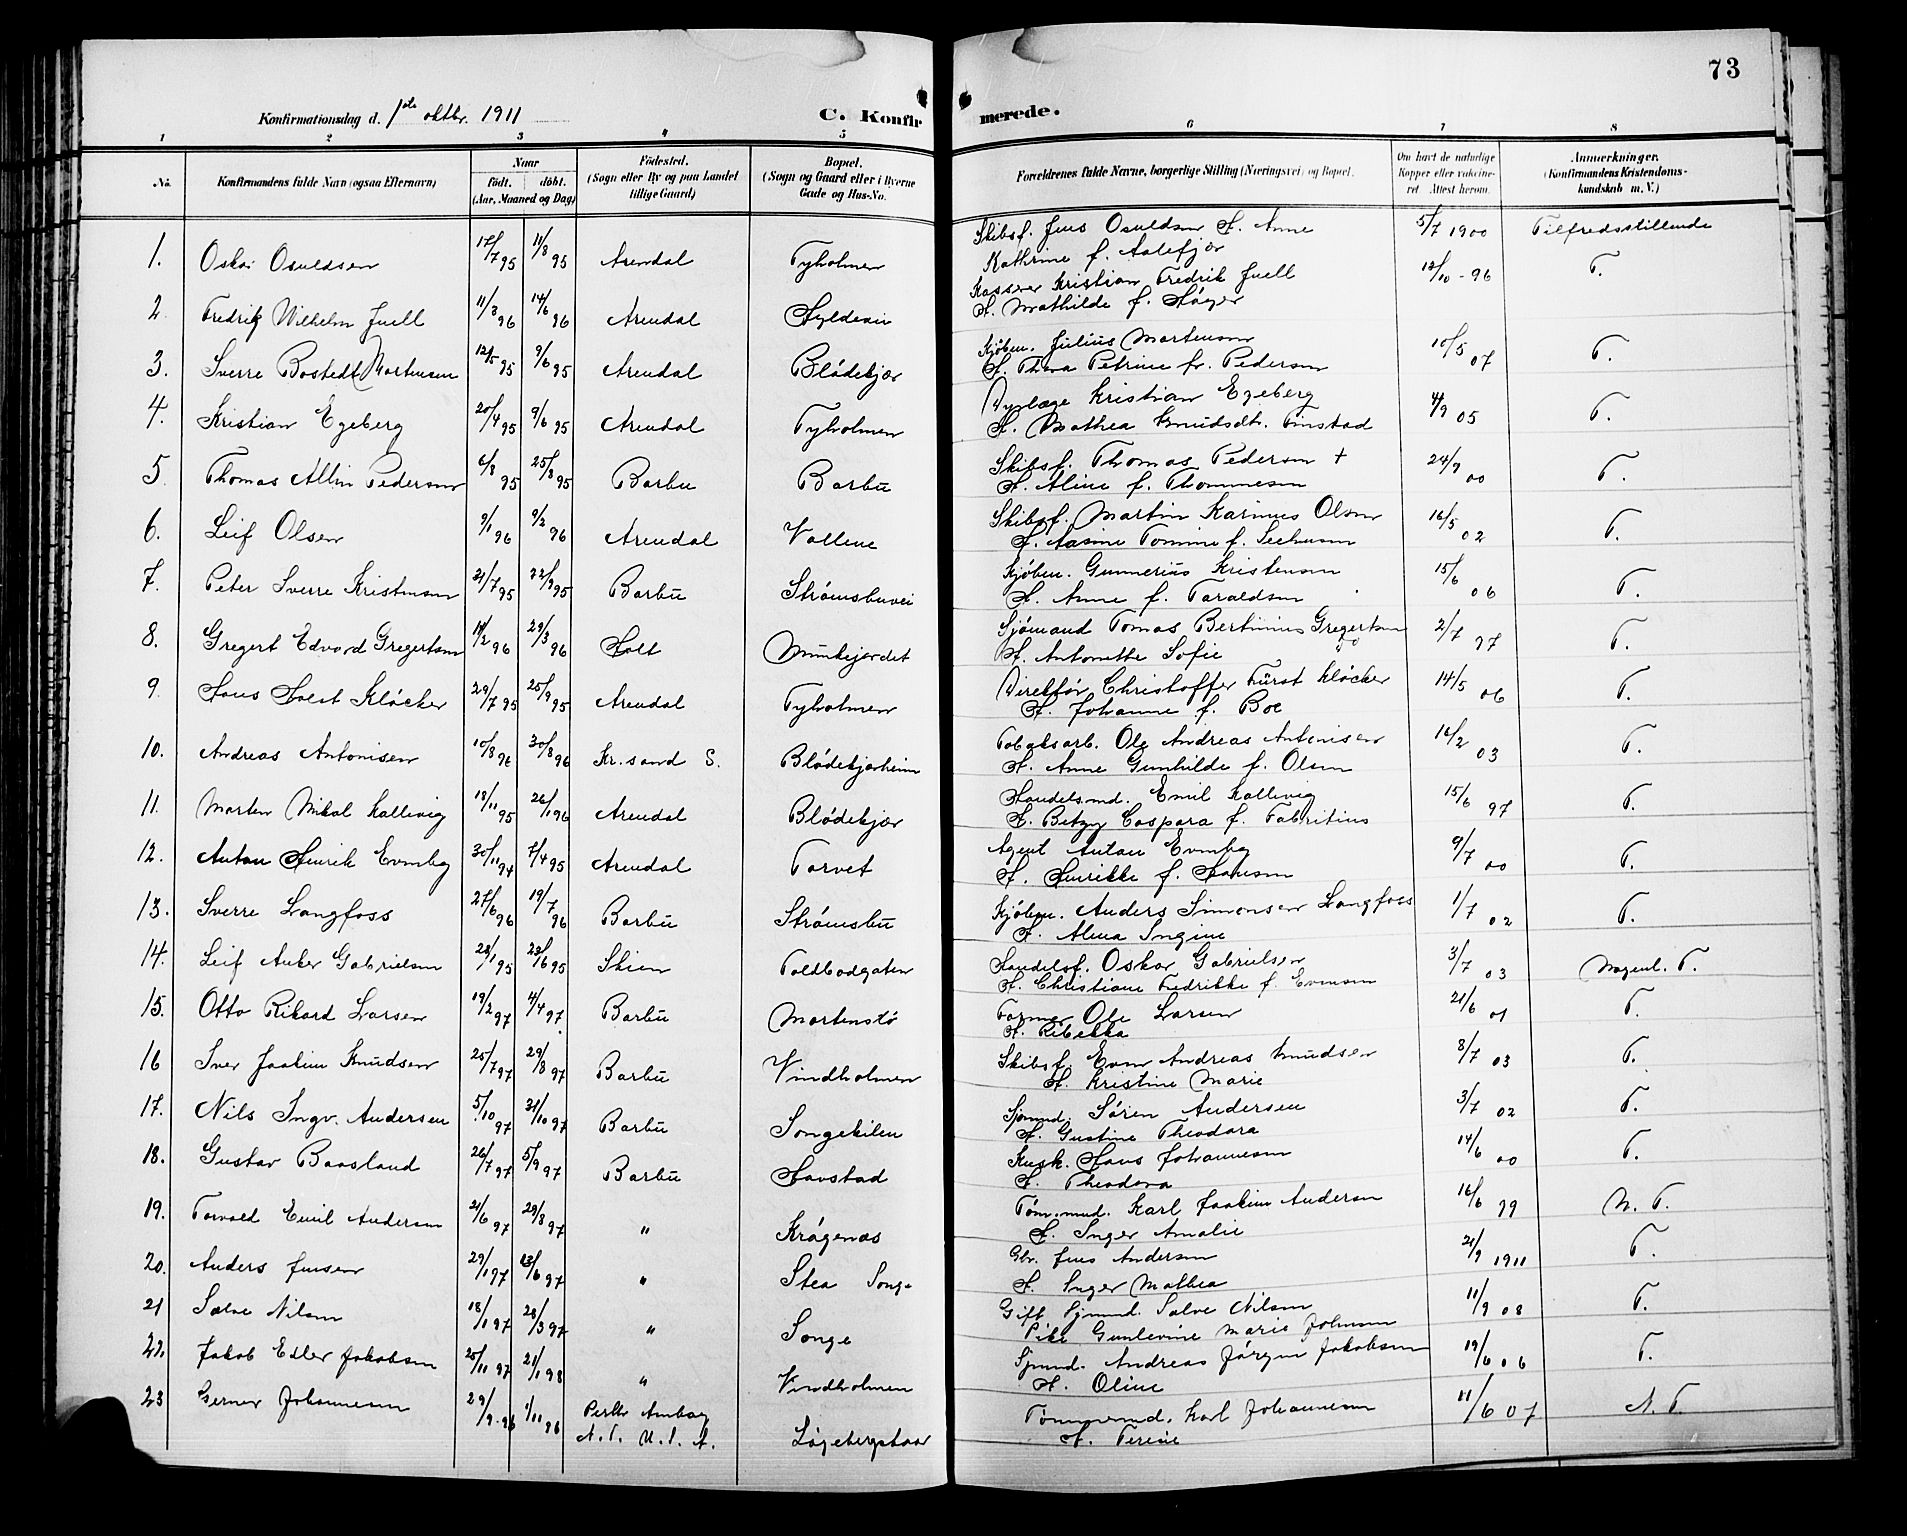 73
Konfirmationsdag d. 1ste oktbr. 1911
C. Konfirmerede.
1 2 3 4 5 6 7 8
No. Konfirmandens fulde Navn (ogsaa Efternavn) Naar født. døbt. (Aar, Maaned og Dag) Fødested. (Sogn eller By og paa Landet tillige Gaard) Bopæl. (Sogn og Gaard eller i Byerne Gade og Hus-No. Forældrenes fulde Navne, borgerlige Stilling (Næringsvei) og Bopæl. Om havt de naturlige Kopper eller vaccineret. Attest herom. Anmerkninger. (Konfirmandens Kristendomskundskab m. V.)
1. Oskar Osuldsen 17/7 95 11/8 95 Arendal Tyholmen Skibsf. Jens Osuldsen H. Anne 5/7 1900 Tilfredsstillende
Kathrine f. Aalefjær
2. Fredrik Wilhelm Juell 11/3 96 14/6 96 Arendal Kasserer Kristian Fredrik Juell 12/10 - 96 T.
H. Mathilde f. Høyer
3. Sverre Bostedt Mortensen 12/5 95 9/6 95 Arendal Blødekjær Kjøbm. Julius Mortensen 10/5 07 T.
H. Thora Petrine f. Pedersen
4. Kristian Egeberg 20/4 95 9/6 95 Arendal Tyholmen Dyrlæge Kristian Egeberg 4/9 05 T.
H. Mathea Knudsdt. Finstad
5. Thomas Pedersen 6/8 95 25/8 95 Barbu Barbu Skibsf. Thomas Pedersen + 24/9 00 T.
H. Aline f. Thommesen
6. Leif Olsen 9/1 96 9/2 96 Arendal Vollene Skibsf. Martin Karinus Olsen 16/5 02 T.
H. Aasine Tomine f.
7. Peter Sverre Kristensen 21/7 95 22/9 95 Barbu Strømsbuvei Kjøbm. Gunnerius Kristensen 15/6 06 T.
H. Anne f. Taraldsen
8. Gregert Edvard Gregertsen 14/2 96 29/3 96 Holt Munkejordet Sjømand Tomas Bertinius Gregertsen 2/7 97 T.
H. Antonette Sofie
9. Hans Holst Kløcker 29/7 95 25/9 95 Arendal Tyholmen Direktør Christoffer Fürst Kløcker 14/5 06 T.
H. Johanne f. Boe
10. Andreas Antonisen 10/8 96 30/8 96 Kr.sand S. Blødekjærheien Tobaksarb. Ole Andreas Antonisen 16/2 03 T.
H. Anne Gunhilde f. Olsen
11. Morten Mikal Kallevig 18/11 95 26/1 96 Arendal Blødekjær Handelsmd. Emil Kallevig 15/6 97 T.
H. Betzy Caspara f. Fabritius
12. Anton Henrik Evensby 30/11 94 7/4 95 Arendal Torvet Agent Anton Evensby 9/7 00 T.
H. Henrikke f. Hansen
13. Sverre Langfoss 27/6 96 19/7 96 Barbu Strømsbu Kjøbm. Anders Simonsen Langfoss 1/7 02 T.
H. Alma Ingine
14. Leif Anker Gabrielsen 28/1 95 23/6 95 Skien Toldbodgaten Handelsf. Oskar Gabrielsen 3/7 03 Nogenl. T.
H. Christiane Fredrikke f. Evensen
15. Otto Rikard Larsen 19/2 97 4/4 97 Barbu Mortenstø Former Ole Larsen 21/6 01 T.
H. Rebekka
16 Iver Joakim Knudsen 25/7 97 29/8 97 Barbu Vindholmen Skibsf. Even Andreas Knudsen 8/7 03 T.
H. Kristine Marie
17. Nils Ingv. Andersen 5/10 97 31/10 97 Barbu Songekilen Sjømd. Søren Andersen 3/7 02 T.
H. Gustine Theodora
18. Gustav Baasland 26/7 97 5/9 97 Barbu Havstad Kusk. Hans Johannesen 14/6 00 T.
H. Theodora
19. Torvald Emil Andersen 21/6 97 29/8 97 " Krøgenæs Tøm.md. Karl Joakim Andersen 16/6 99 N. T.
H. Inger Amalie
20. Anders Jensen 29/1 97 13/6 97 " Stea Songe Gbr. Jens Andersen 21/9 1911 T.
H. Inger Mathea
21 Salve Nilsen 18/1 97 28/3 97 " Songe Gift Sjømd. Salve Nilsen 11/9 08 T.
Pike Gunlevine Marie Johnsen
22. Jakob Edler Jakobsen 25/11 97 21/1 98 " Vindholmen Sjømd. Andreas Jørgen Jakobsen 19/6 06 T.
H. Oline
23 Gerner Johannesen 29/9 96 1/11 96 Perth Amboy Tømmermd. Karl Johannesen 11/6 07 N. T.
H. Terese